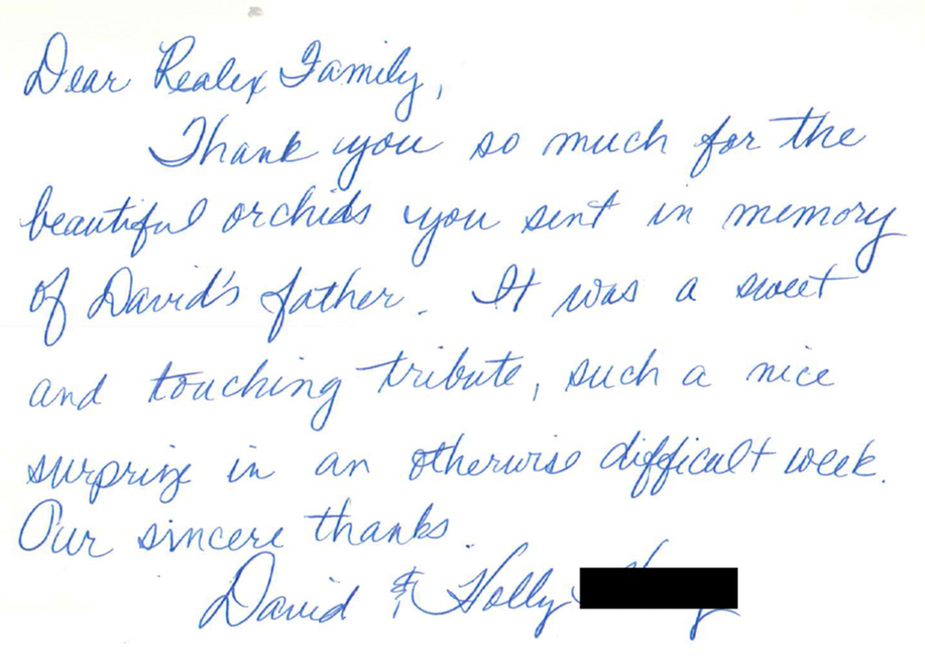 Dear Realex Family,
Thank you so much for the
beautiful orchids you sent in memory
of David's father. It was a sweet
and touching tribute, such a nice
surprize in an otherwise difficult week.
Our sincere thanks.
David & Holly